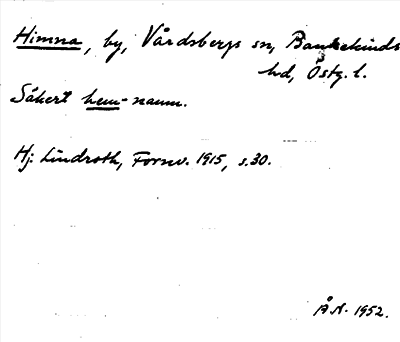 Himna, by, Vårdsbergs sn, Bankekinds
hd, Östg. l.
Säkert hem-namn.
Hj. Lindroth, Fornv. 1915, s. 30.
Å. N. 1952.